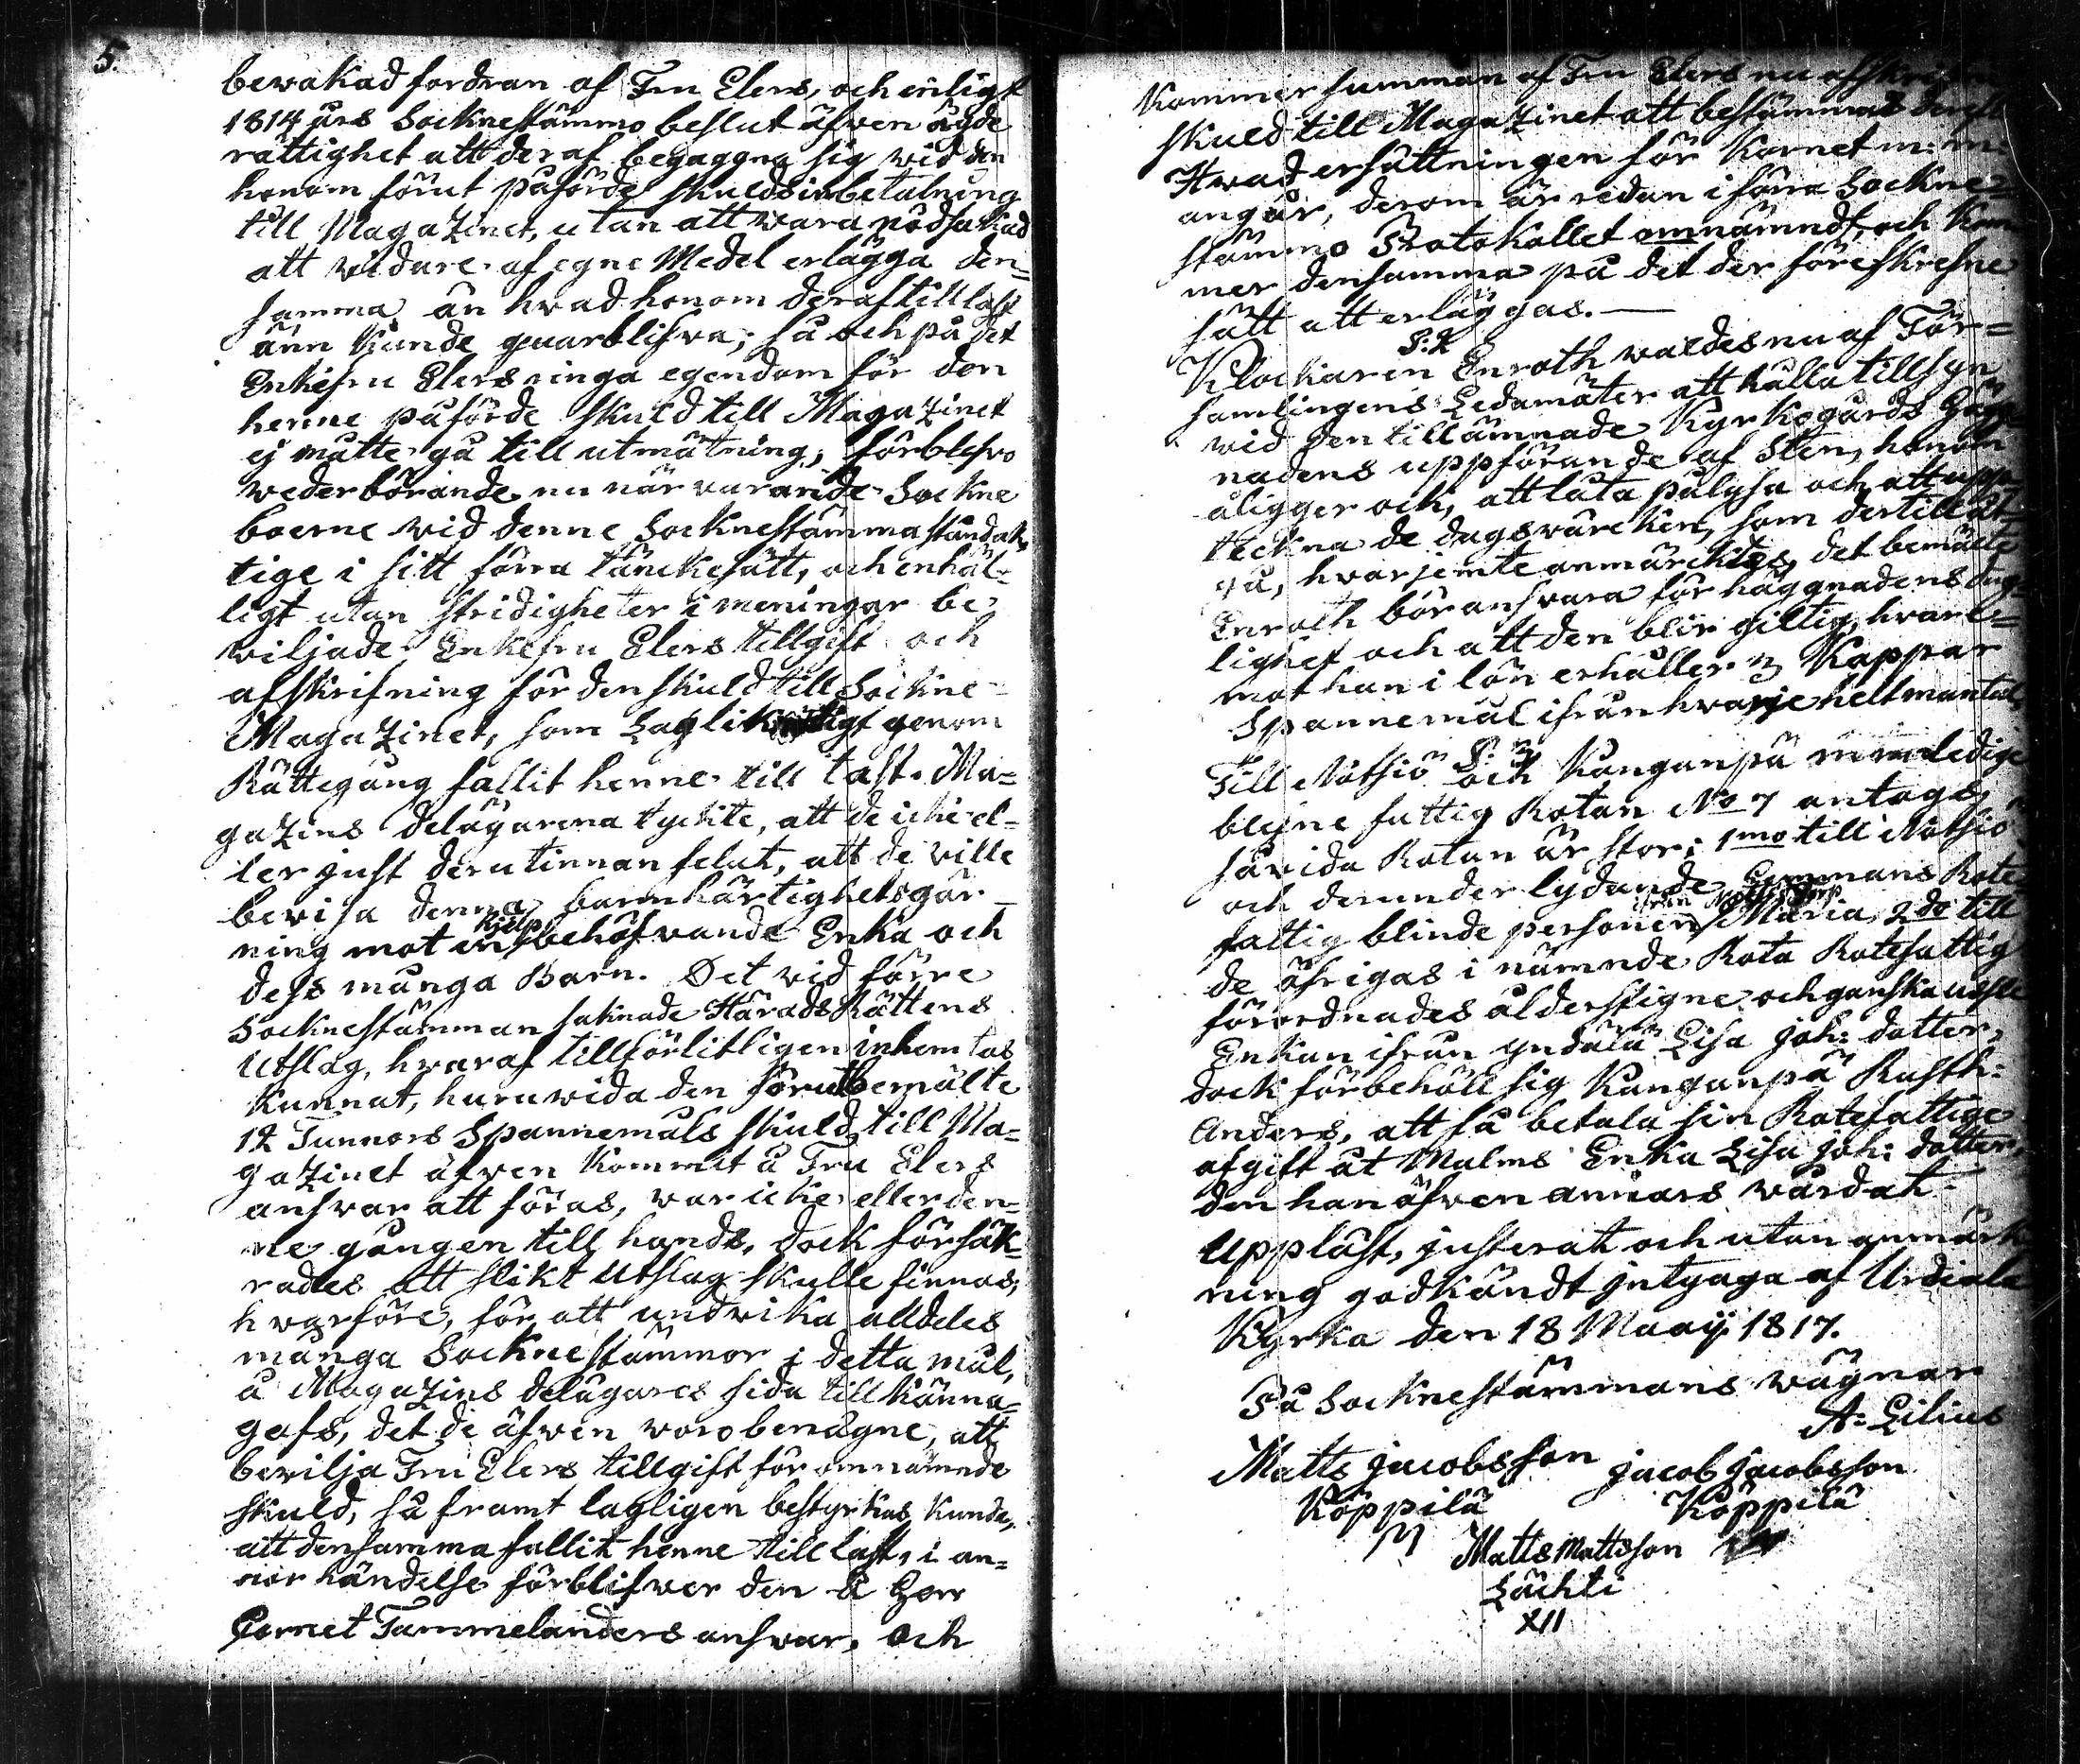 5.
bewakad fordran af Fru Elers, och enligt
1814 års Sockneståmmo beslut äfwen ägde
rättighet att deraf begaggna sig wid den
honom förut påförde skulds inbetalning
till Magazinet, utan att wara nödsakad
att widare af egne Medel erlägga den=
samma, än hwad honom deraf till last
änn kunde quarblifwa; så och på det
Enkefru Elers ringa egendom för den
henne påförde skuld till Magazinet
ej måtte gå till utmätning, förblefwo
wederbörande nu närwarande Sockne
boerne wid denne Socknestämma ståndak=
tige i sitt förra tänckesätt, och enhäl=
ligt utan stridigheter i meningar be=
wiljade Enkefru Elers tillgift och
afskrifning för den skuld till Sockne=
Magazinet, som Lagliktigt genom
Rättegång fallit henne till last. Ma=
gazins delägarena tyckte, att de icke el=
ler just derutinnan felat, att de wille
bewisa denna barmhärtighetsgär=
ning mot en hjelp behöfwande Enka och
dess många Barn. Det wid förre
Sockneståmman saknade HäradsRättens
Utslag, hwaraf tillförlitligen inhemtas
kunnat, huruwida den förutbemälte
12 Tunnors Spannemåls skuld till Ma=
gazinet äfwen kommit å Fru Elers
answar att föras, war icke eller den=
ne gången till hands, dock försäk=
rades att slikt Utslag skulle finnas;
hwarföre, för att undwika alldeles
många Socknestämmor i detta mål,
å Magazins delägares sida tillkänna=
gafs, det de äfwen woro benägne, att
bewilja Fru Elers tillgift för omnämnde
skuld, så framt lagligen bestyrkas kunde,
att densamma fallit henne till last, i an=
nor händelse förblifwer den å Herr
Cornet Tammelanders answar, och
Kommer summan af Fru Elers nu afskrifne
skuld till Magazinet att bestämmas
Hwad ersättningen för Kornet m: m:
angår, derom är redan i förra Sockne=
stämmo Protokollet omnämndt, och Kom
mer densamma på det der föreskrefne
sätt att erläggas.
§: 2
Klockaren Enroth waldes nu af För=
samlingens Ledamöter att hålla tillsyn
wid den tillämnade Kyrkogårds Hägg
nadens uppförande af Sten, honom
åligger ock, att låta pålysa och att upp
teckna de dagswärcken, som dertill åt
gå, hwarjemte anmärcktes, det bemälte
Enroth bör answara för häggnadens dug=
lighet och att den blir giltig, hware=
mot han i lön erhåller 3 Kappar
Spannemål ifrån hwarje helt mantal.
§: 3
Till Nötsiö och Kanganpä rum ledige
blefne fattig Rotan No 7 antogs,
såwida Rotan är stor: 1mo till Nötsiö
och derunder lydande Hemmans Rote=
fattig blinde personen ifrån Maria, 2do till
de öfrigas i nämnde Rota Rotefattig
förordnades ålderstigne och ganska usle
Enkan ifrån Yndälä Lisa Joh: dotter,
dock förbehöll sig Kanganpä Rusth:
Anders, att få betala sin Rotefattige
afgift åt Malms Enka Lisa Joh: dotter,
den han äfwen annars wårdat.
Uppläst, justerat och utan anmärk
ning godkändt jntyga af Urdiala
Kyrka den 18 Maaij 1817.
På Socknestämmans wägnar
A: Lilius
Matts Jacobsson Jacob Jacobsson
Köppilä Köppilä
Matts Mattsson
Lächti
XII